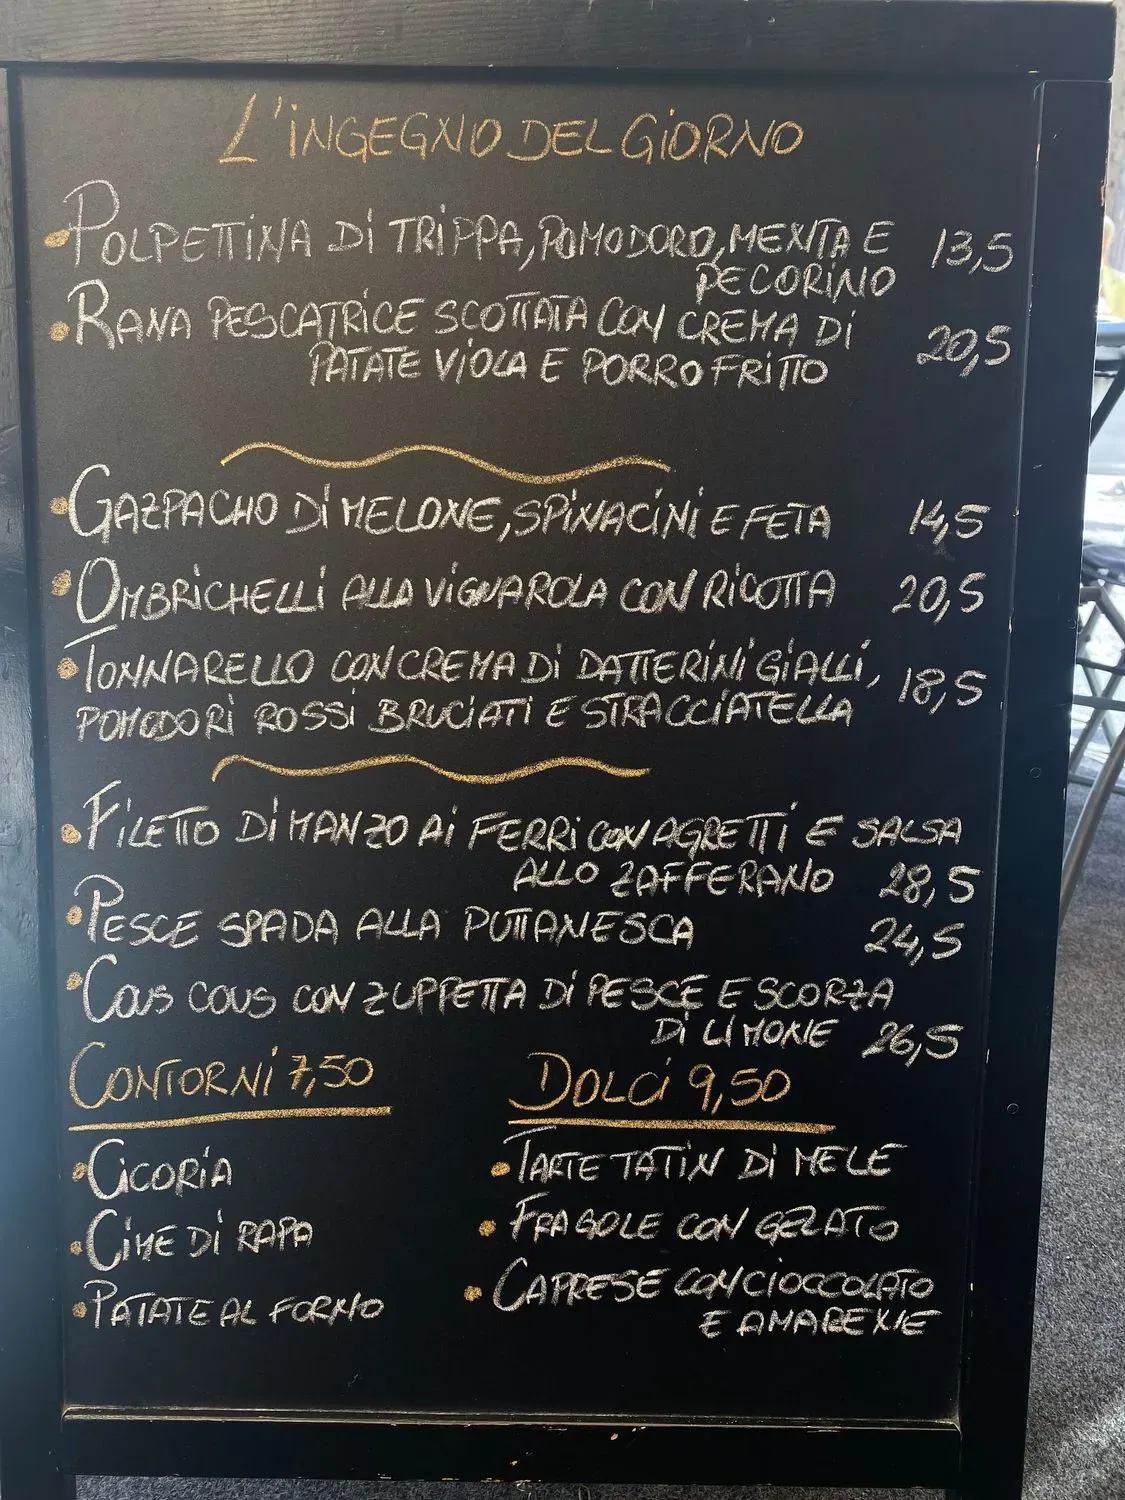 L'INGEGNO DEL GIORNO
POLPETTINA DI TRIPPA, POMODORO, MENTA E 13,5
PECORINO
RANA PESCATRICE SCOTTATA CON CREMA DI
PATATE VIOLA E PORRO FRITTO 20,5
GAZPACHO DI MELONE, SPINACINI E FETA 14,5
OMBRICHELLI ALLA VIGNAROLA CON RICOTTA 20,5
TONNARELLO CON CREMA DI DATTERINI GIALLI, 18,5
POMODORI ROSSI BRUCIATI E STRACCIATELLA
FILETTO DI MANZO AI FERRI CON AGRETTI E SALSA
ALLO ZAFFERANO 28,5
PESCE SPADA ALLA PUTTANESCA 24,5
COUS COUS CON ZUPPETTA DI PESCE E SCORZA
DI LIMONE 26,5
CONTORNI 7,50
CICORIA
CIME DI RAPA
PATATE AL FORNO
DOLCI 9,50
TARTE TATIN DI MELE
FRAGOLE CON GELATO
CAPRESE CON CIOCCOLATO
E AMARENE